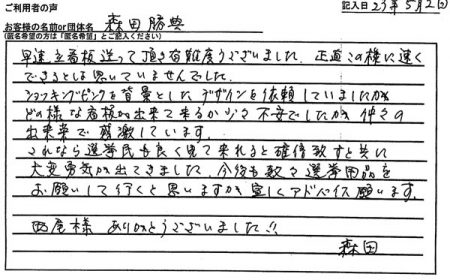 ご利用者の声
記入日 23年5月2日
お客様の名前or団体名 森田勝典
(匿名希望の方は「匿名希望」とご記入ください)
早速立看板送って頂き有難度うございました。正直この様に速く
できるとは思いていませんでした。
ショッキングピンクを背景とした デザインを依頼していましたが
どの様な看板が出来て来るか少々不安でしたが 仲々の
出来栄で感激しています。
これなら選挙民も良く見て来れると確信致すと共に
大変勇気が出てきました。今後も数々選挙用品を
お願いして行くと思いますが宜しくアドバイス願います。
西尾様 ありがとうございました!!
森田